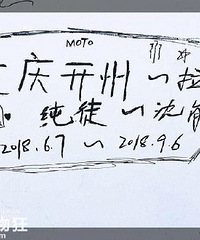 MOTO
庆开州～拉
纯徒～沈
2018.6.7～2018.9.6
物狂